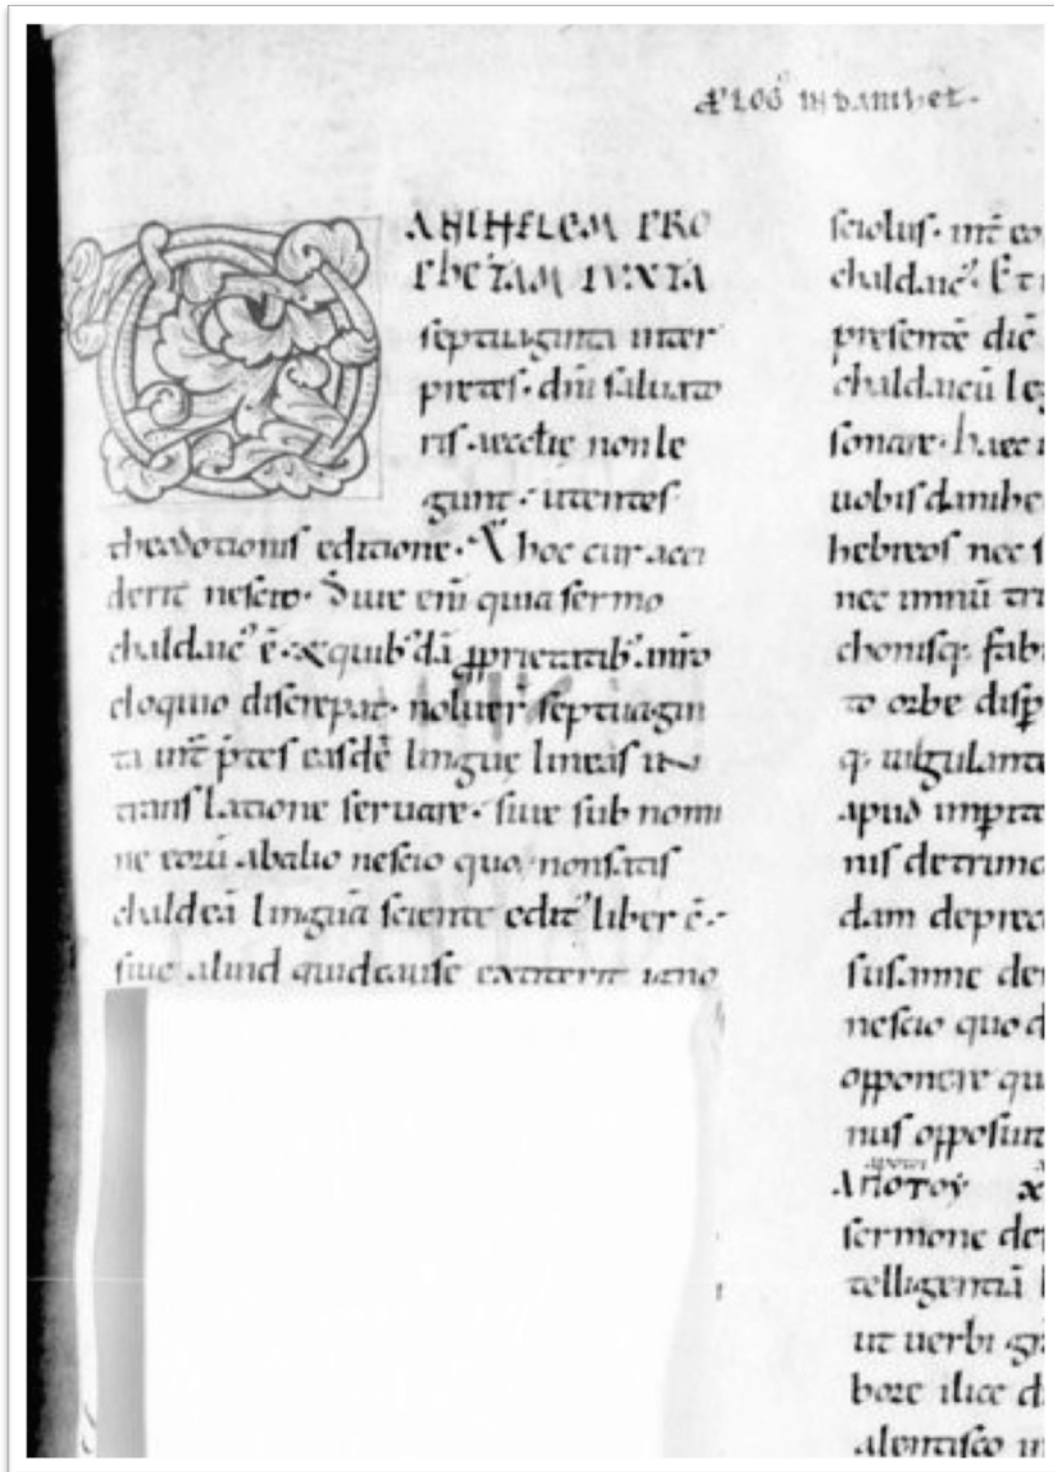 PLOG IN DANIHEL.
DANIHELEM PRO
PHETAM IUXTA
septuaginta inter
pretes. dñi saluato
ris. aecctię non le
gunt. utentes
theodotionis editione. & hoc cur acci
derit nescio. Siue eni quia sermo
chaldaic' ē. & quib'dā pprietatib'. nr̄o
eloquio discrepat. noluer̄ septuagin
ta int̄ p̄tes easdē linguę lineas in
translatione seruare. siue sub nomi
ne eorū abalio nescio quo. non satis
chaldeā linguā sciente edit' liber ē.
siue aliud quid cause extiterit igno
sciolus. int̄ eo
chaldaic'. Et
presentē diē
chaldaicū le
sonare. haec
uobis danihe
hebreos nec s
nec imnū tri
chonisq. fab
to orbe disp
q. iugulante
apud imp̄ita
nis detrunc
dam deprec
susanne de
nescio quo d
opponere qu
nus opposun
ΑΠΟΤΟΥ
sermone de
telligentiā
ut uerbi gr̄
bore ilice d
alentisco in